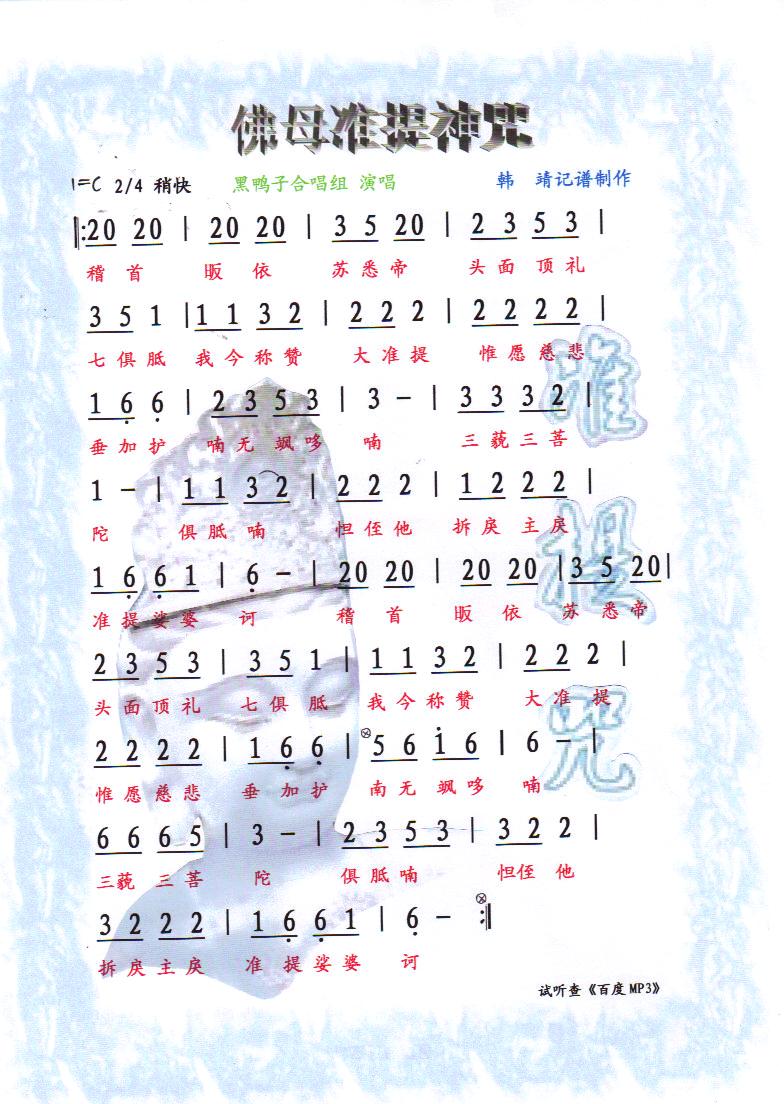 佛母准提神咒
1=C 2/4 稍快 黑鸭子合唱组 演唱 韩 靖记谱制作
‖:20 20 | 20 20 | 3 5 20 | 2 3 5 3 |
稽首 皈依 苏悉帝 头面顶礼
3 5 1 | 1 1 3 2 | 2 2 2 | 2 2 2 2 |
七俱胝 我今称赞 大准提 惟愿慈悲
1 6̣ 6̣ | 2 3 5 3 | 3 – | 3 3 3 2 |
垂加护 喃无飒哆 喃 三藐三菩
1 – | 1 1 3 2 | 2 2 2 | 1 2 2 2 |
陀 俱胝喃 怛侄他 拆戾主戾
1 6̣ 6̣ 1 | 6̣ – | 20 20 | 20 20 | 3 5 20 |
准提娑婆 诃 稽首 皈依 苏悉帝
2 3 5 3 | 3 5 1 | 1 1 3 2 | 2 2 2 |
头面顶礼 七俱胝 我今称赞 大准提
2 2 2 2 | 1 6̣ 6̣ | ⊗ 5 6 1̇ 6 | 6 – |
惟愿慈悲 垂加护 南无飒哆 喃
6 6 6 5 | 3 – | 2 3 5 3 | 3 2 2 |
三藐三菩 陀 俱胝喃 怛侄他
3 2 2 2 | 1 6̣ 6̣ 1 | 6̣ – ⊗ :‖
拆戾主戾 准提娑婆 诃
准
提
咒
试听查《百度MP3》